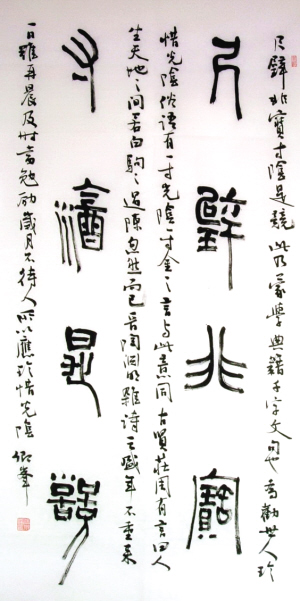 尺璧非寶寸陰是競此乃蒙學典籍千字文句也意勸世人珍
尺璧非寶
惜光陰俗語有一寸光陰一寸金之言與此意同古賢莊周有言曰人
生天地之間若白駒之過隙忽然而已晉陶淵明雜詩云盛年不重來
寸陰是競
一日難再晨及時當勉勵歲月不待人所以應珍惜光陰